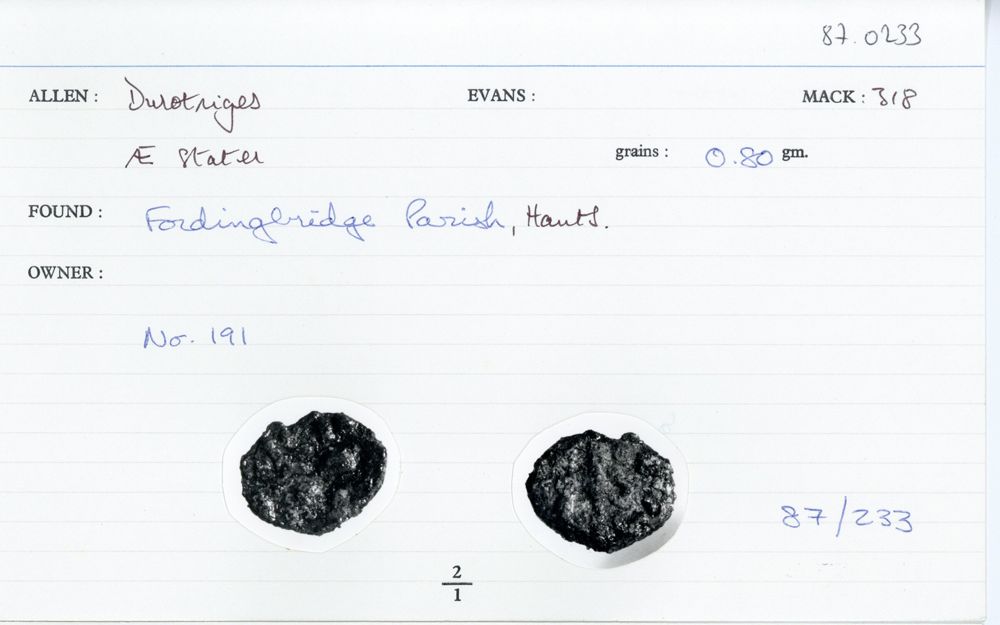 87.0233
ALLEN : Durotriges EVANS : MACK : 318
Æ Stater grains : 0.80 gm.
FOUND : Fordingbridge Parish, Hants.
OWNER :
No. 191
87/233
2
1